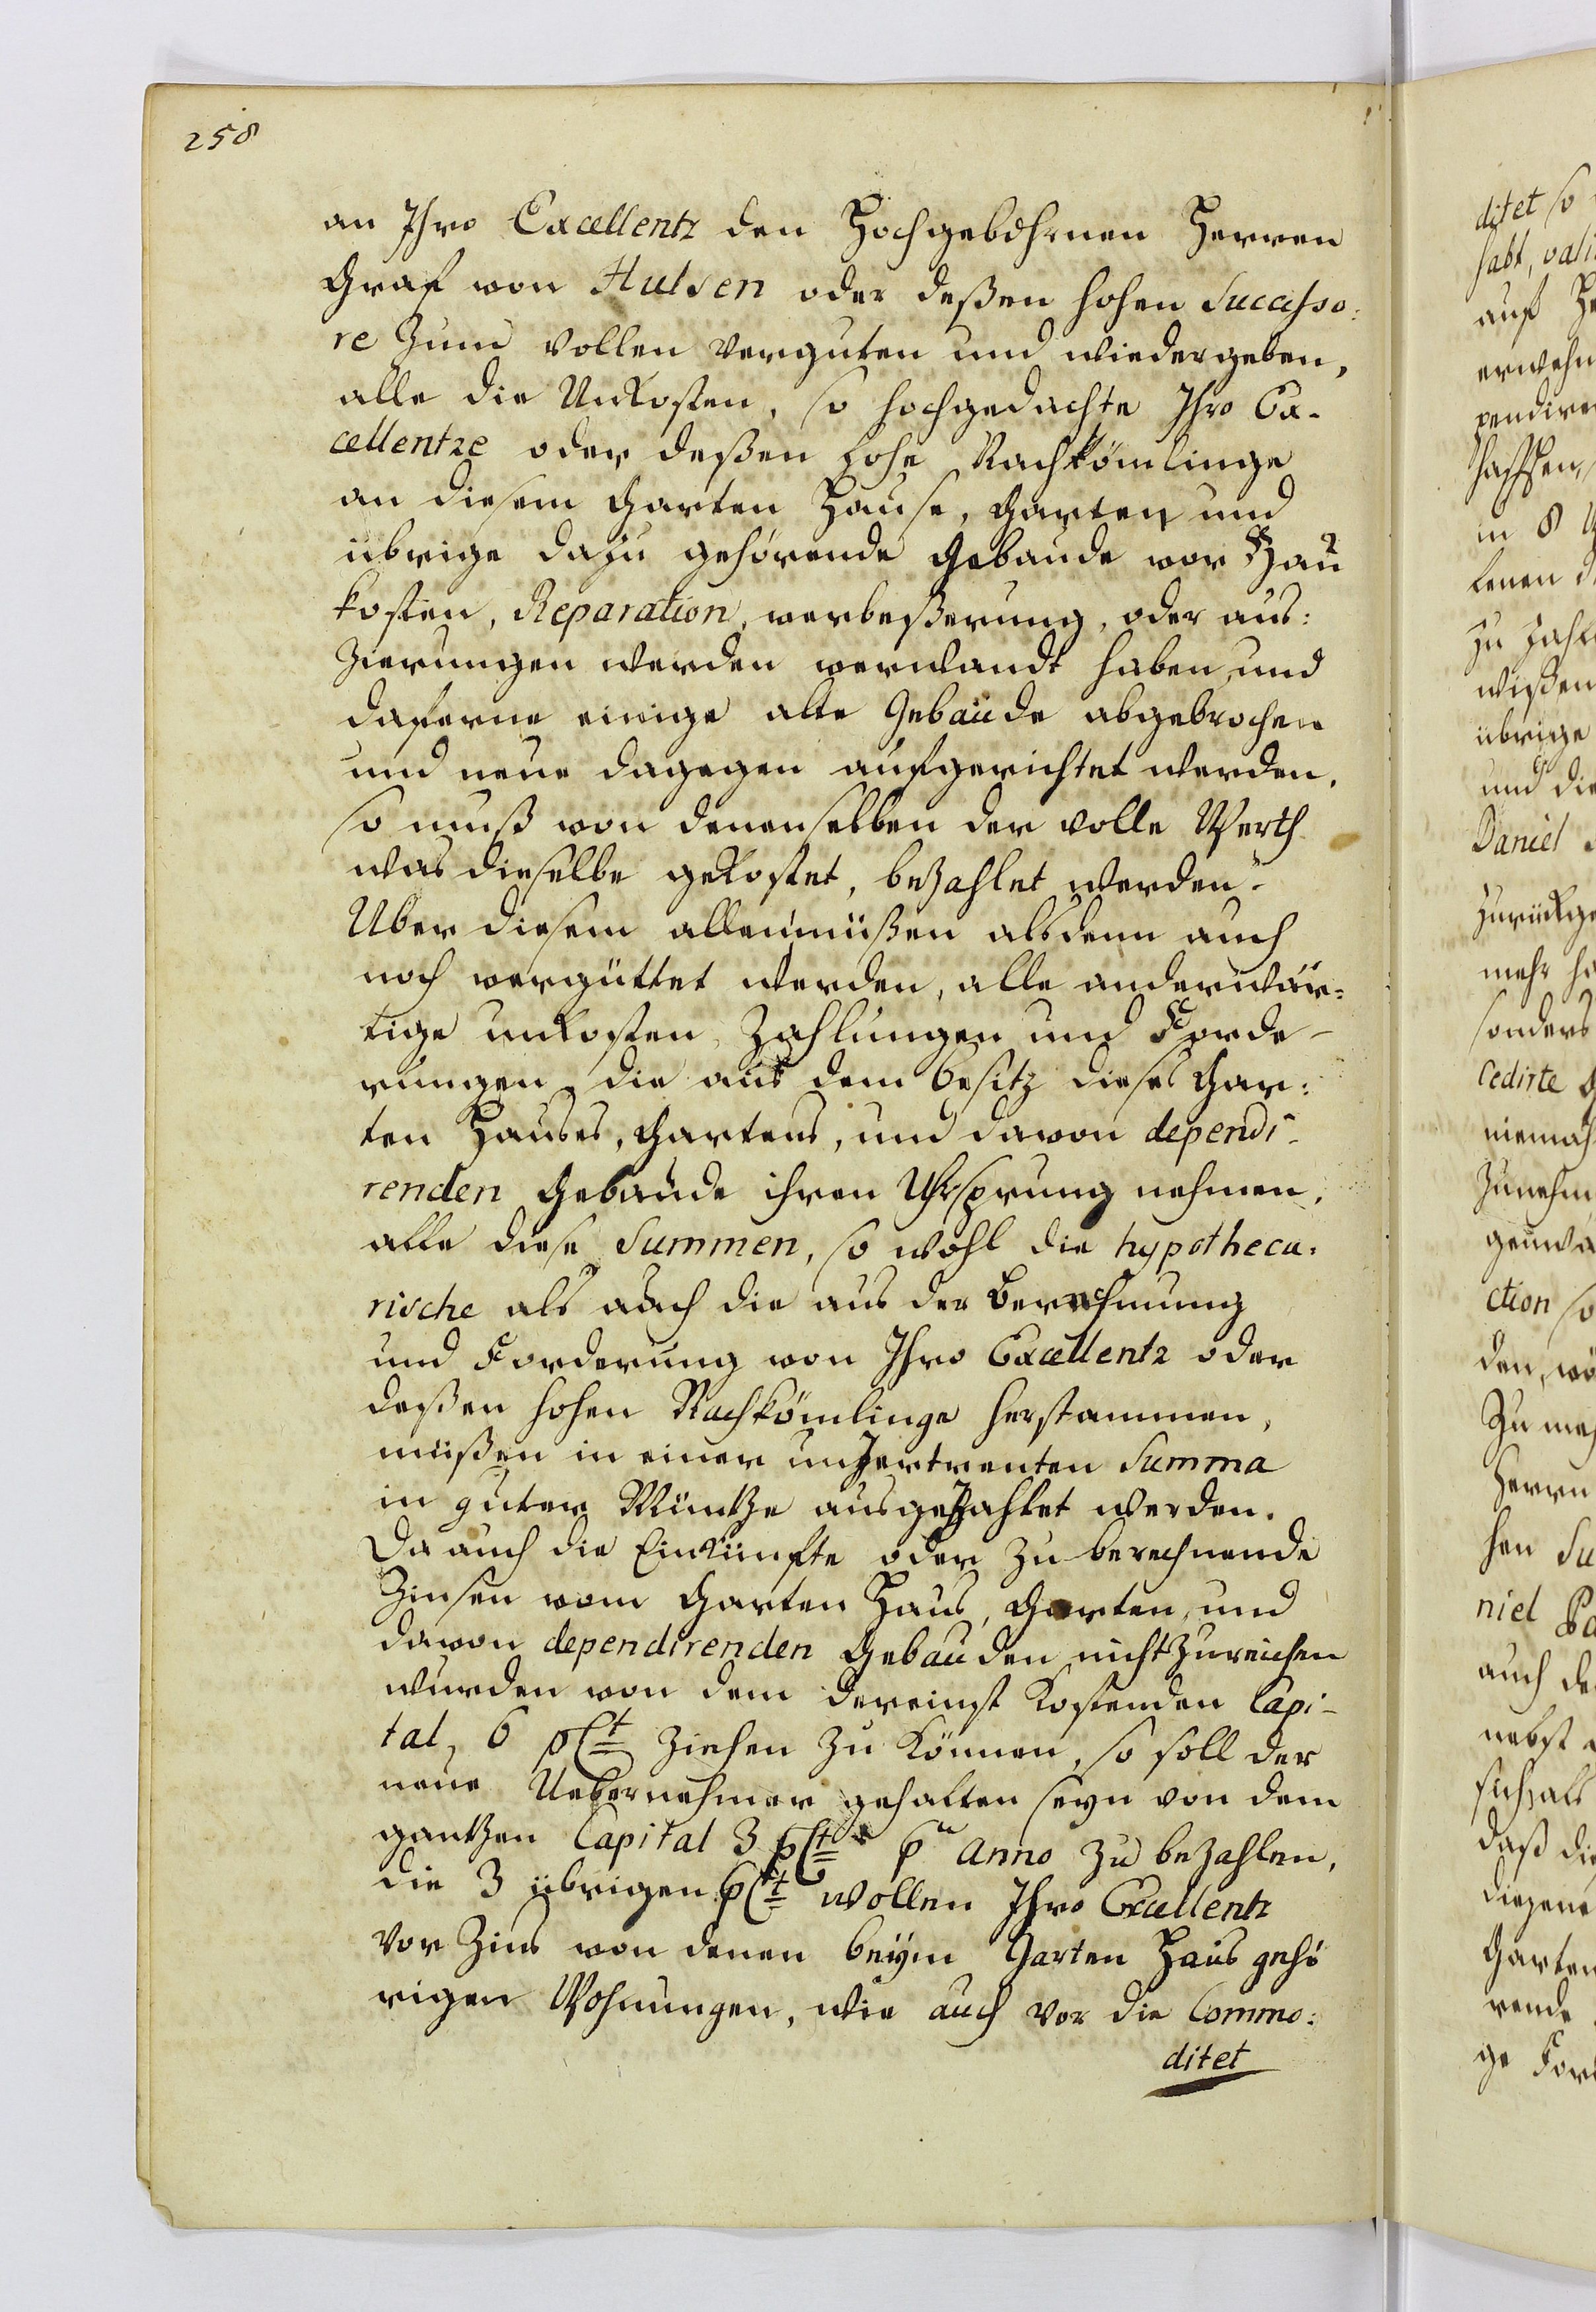 258
an Ihro Excellentz den Hochgebohrnen Herren
Graf von Hulsen oder deßen hohen Successo:
re zum vollen verguten und wiedergeben,
alle die Unkosten, so hochgedachte Ihro Ex-
cellentze oder deßen hohe Nachkömlinge
an diesem Garten Hause, Garten und
übrige dazu gehörende Gebaude vor Bau
kosten, Reparation, verbeßerung, oder aus:
zierungen werden verwandt haben, und
daferne einige alte Gebaüde abgebrochen
und neue dagegen aufgerichtet werden,
so muß von denenselben der volle Werth
was dieselbe gekostet, bezahlet werden.
Uber diesem allen müßen alsdenn auch
noch vergüttet werden, alle anderwär-
tige unkosten, Zahlungen und Forde-
rungen, die aus dem besitz dieses Gar:
ten Hauses, Gartens, und davon dependi-
renden Gebaude ihren Uhrsprung nehmen,
alle diese Summen, so wohl die hypotheca:
rische als auch die aus der berechnung
und Forderung von Ihro Excellentz oder
deßen hohen Nachkömlinge herstammen,
müßen in einer unzertrenten Summa
in guter Müntze ausgezahlet werden.
Da auch die Einkünfte oder zu berechnende
Zinsen vom Garten Haus, Garten, und
davon dependirenden Gebauden nicht zureichen
wurden von dem dereinst kostenden Capi-
tal, 6 pCt ziehen zu können, so soll der
neue Uebernehmer gehalten seyn von dem
gantzen Capital 3 pCt pr Anno zu bezahlen,
die 3 übrigen pCt wollen Ihro Excellentz
vor Zins von denen beym Garten Haus gehö
rigen Wohnungen, wie auch vor die Commo:
ditet
ditet so
habt, vali
auf
erwehn
pendire
haften,
in 8
lenen
zu zahle
wißen
übrige
und die
Daniel
zurükge
mehr ha
sonders
Cedirte
niemah
zunehm
genwa
ction so
den, wo
Zu meh
Herrn
hen Su
niel
auch de
nebst
sich als
daß die
diejene
Garten
rende
ge Ford